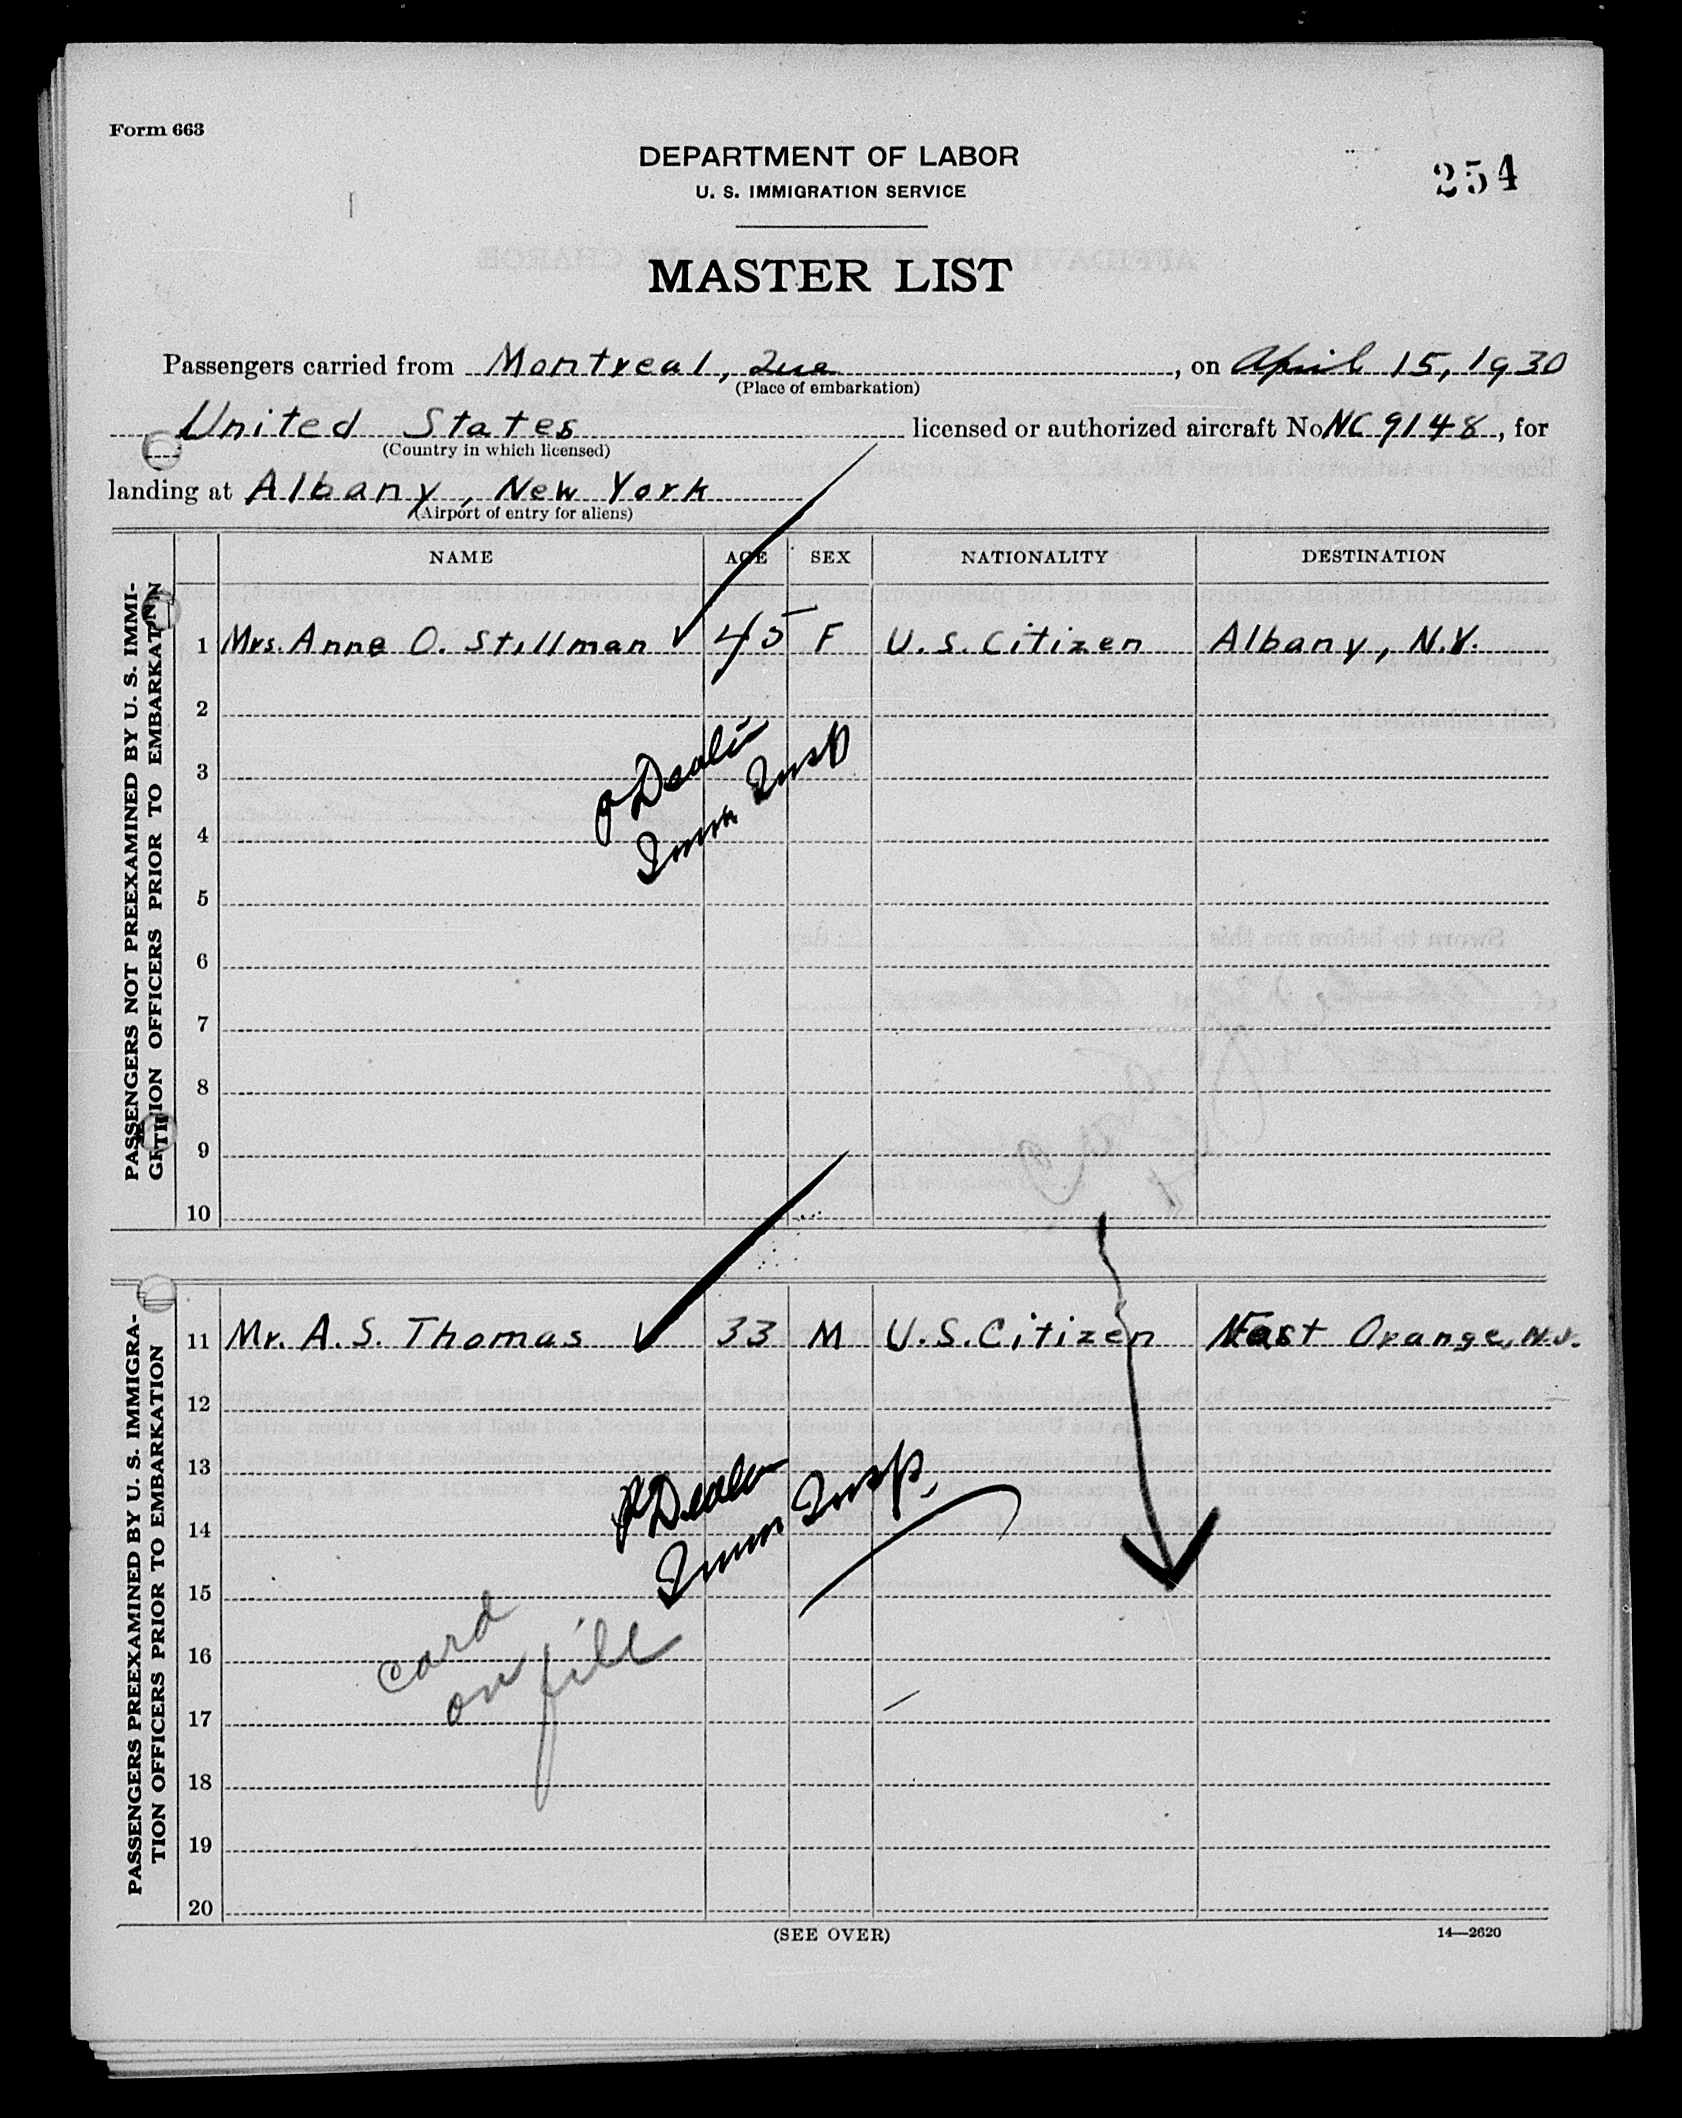 Form 663
DEPARTMENT OF LABOR
U. S. IMMIGRATION SERVICE
254
MASTER LIST
Passengers carried from Montreal, Que, on April 15, 1930
(Place of embarkation)
United States licensed or authorized aircraft No. NC 9148, for
(Country in which licensed)
landing at Albany, New York
(Airport of entry for aliens)
NAME AGE SEX NATIONALITY DESTINATION
PASSENGERS NOT PREEXAMINED BY U. S. IMMI-
GRATION OFFICERS PRIOR TO EMBARKATION
1 Mrs. Anne O. Stillman 45 F U.S. Citizen Albany, N.Y.
2
3
4
Imm Insp
5
6
7
8
9
10
PASSENGERS PREEXAMINED BY U. S. IMMIGRA-
TION OFFICERS PRIOR TO EMBARKATION
11 Mr. A. S. Thomas 33 M U.S. Citizen East Orange, N.J.
12
13
14
Imm Insp.
15
16
card
on file
17
18
19
20
(SEE OVER)
14—2620